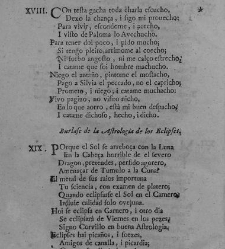 XVIII. Con testa gacha toda charla escucho,
Dexo la chança, i sigo mi provecho;
Para vivir, escondome, i acecho,
I visto de Paloma lo Avechucho.
Para tener doi poco, i pido mucho;
Si tengo pleito, arrimome al cohecho;
Ni sorbo angosto, ni me calço estrecho;
I catame que soi hombre machucho.
Niego el antaño, pintome el mostacho,
Pago a Silvia el pecado, no el capricho;
Prometo, i niego, i catame muchacho.
Vivo pagizo, no visito nicho,
En lo que ahorro, está mi buen despacho;
I catame dichoso, hecho, i dicho.
Burlase de la Astrologia de los Eclipses.
XIX. Porque el Sol se arreboça con la Luna
En la Cabeça horrible de el severo
Dragon, pretendes, perfido agorero,
Amenaçar de Tumulo a la Cuna
El metal de sus rayos importuna
Tu sciencia, con examen de platero;
Quando eclipsarse el Sol en el Carnero,
Induze calidad solo ovejuna.
Hoi se eclipsa en Carnero, i otro dia
Se eclipsará de Viernes en los peces;
Signo Corvillo en buena Astrologia.
Eclipses hai picaños, i soezes,
Amigos de canalla, i picardia;